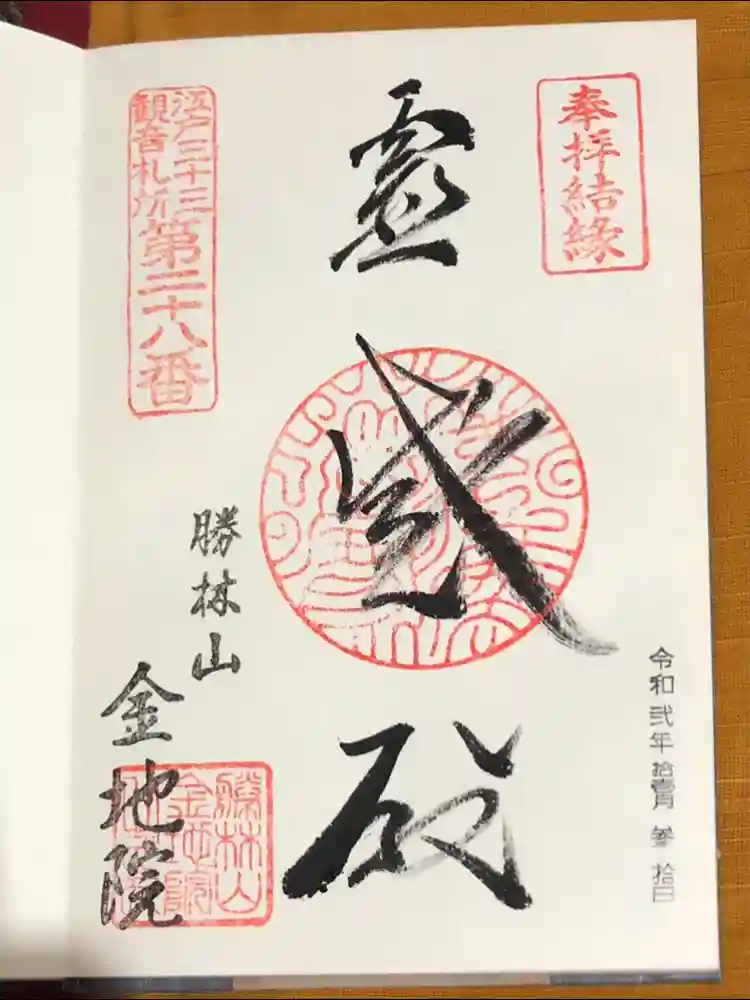 奉拝結縁
令和 弐年 拾壹月 參 拾日
霊感殿
江戸三十三
観音札所
第二十八番
勝林山
金地院
勝林山
金地院